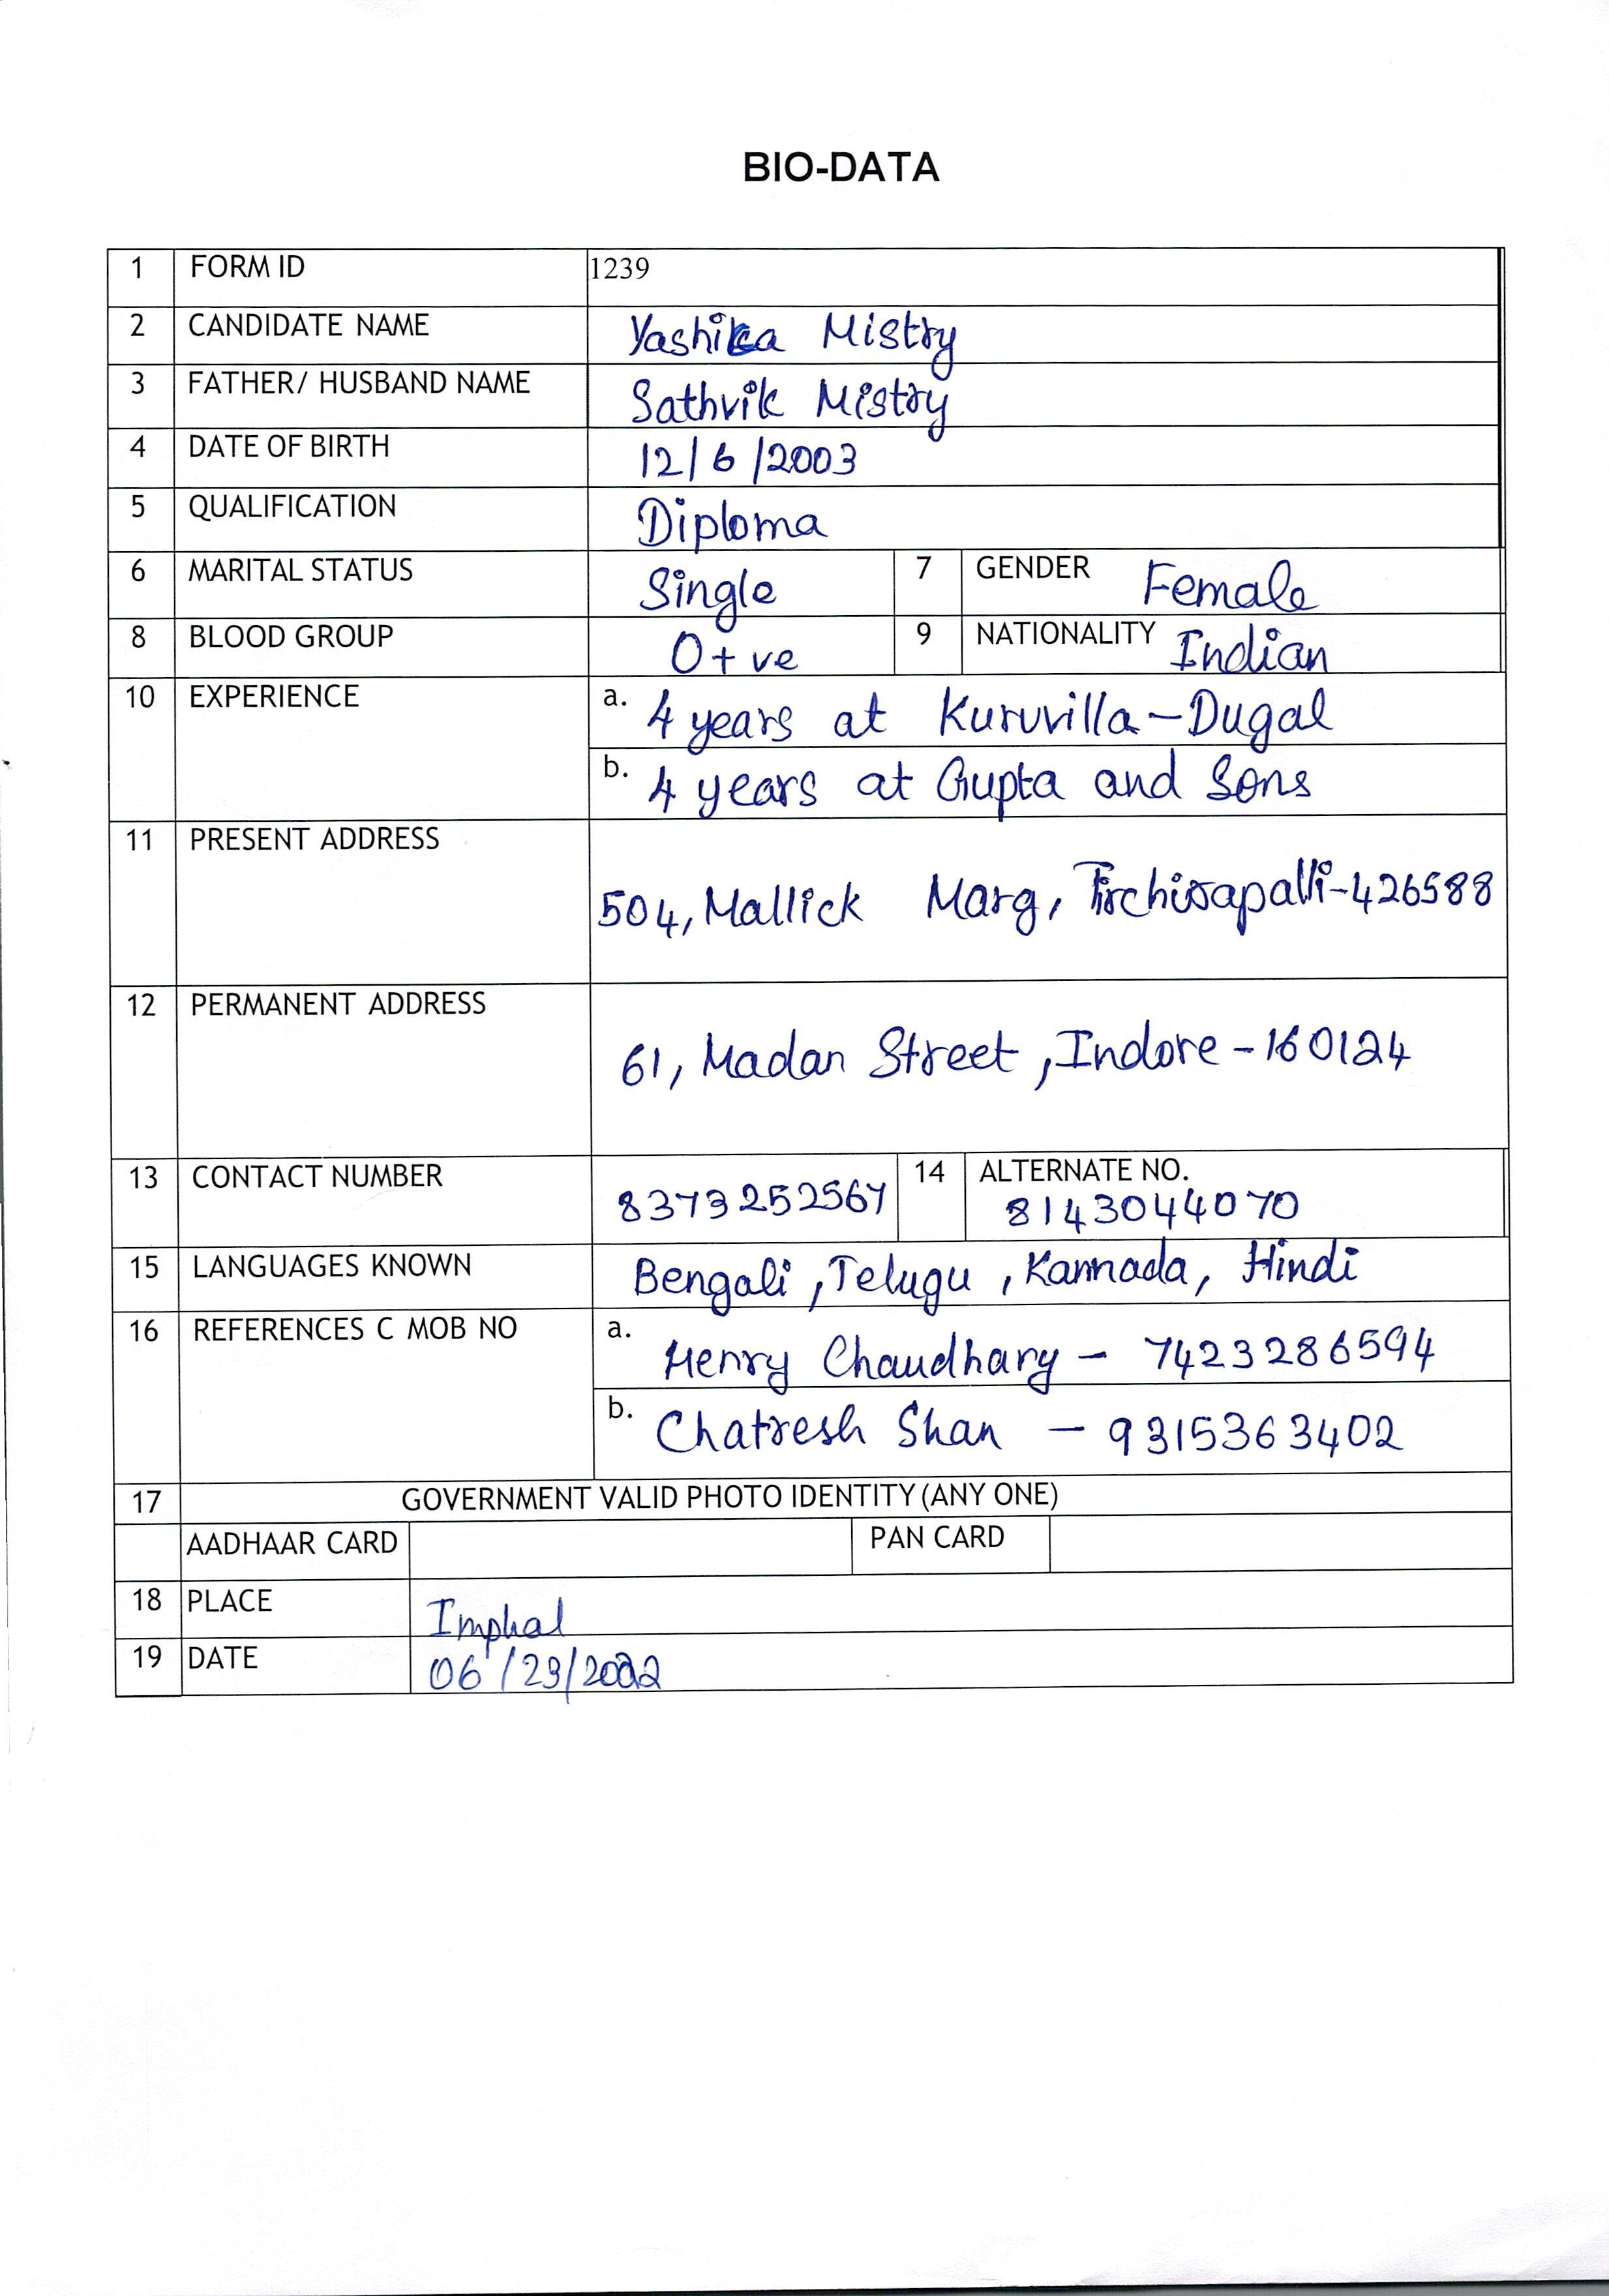 BIO-DATA
1 FORM ID 1239
2 CANDIDATE NAME Yashika Mistry
3 FATHER/ HUSBAND NAME Sathvik Mistry
4 DATE OF BIRTH 12/6/2003
5 QUALIFICATION Diploma
6 MARITAL STATUS Single 7 GENDER Female
8 BLOOD GROUP O+ve 9 NATIONALITY Indian
10 EXPERIENCE a. 4 years at Kuruvilla-Dugal
b. 4 years at Gupta and Sons
11 PRESENT ADDRESS
504, Mallick Marg, Tirchirapalli-426588
12 PERMANENT ADDRESS
61, Madan Street, Indore-160124
13 CONTACT NUMBER 8373252567 14 ALTERNATE NO.
8143044070
15 LANGUAGES KNOWN Bengali, Telugu, Kannada, Hindi
16 REFERENCES C MOB NO a. Henry Chaudhary - 7423286594
b. Chatresh Shan - 9315363402
17 GOVERNMENT VALID PHOTO IDENTITY (ANY ONE)
AADHAAR CARD PAN CARD
18 PLACE Imphal
19 DATE 06/23/2022